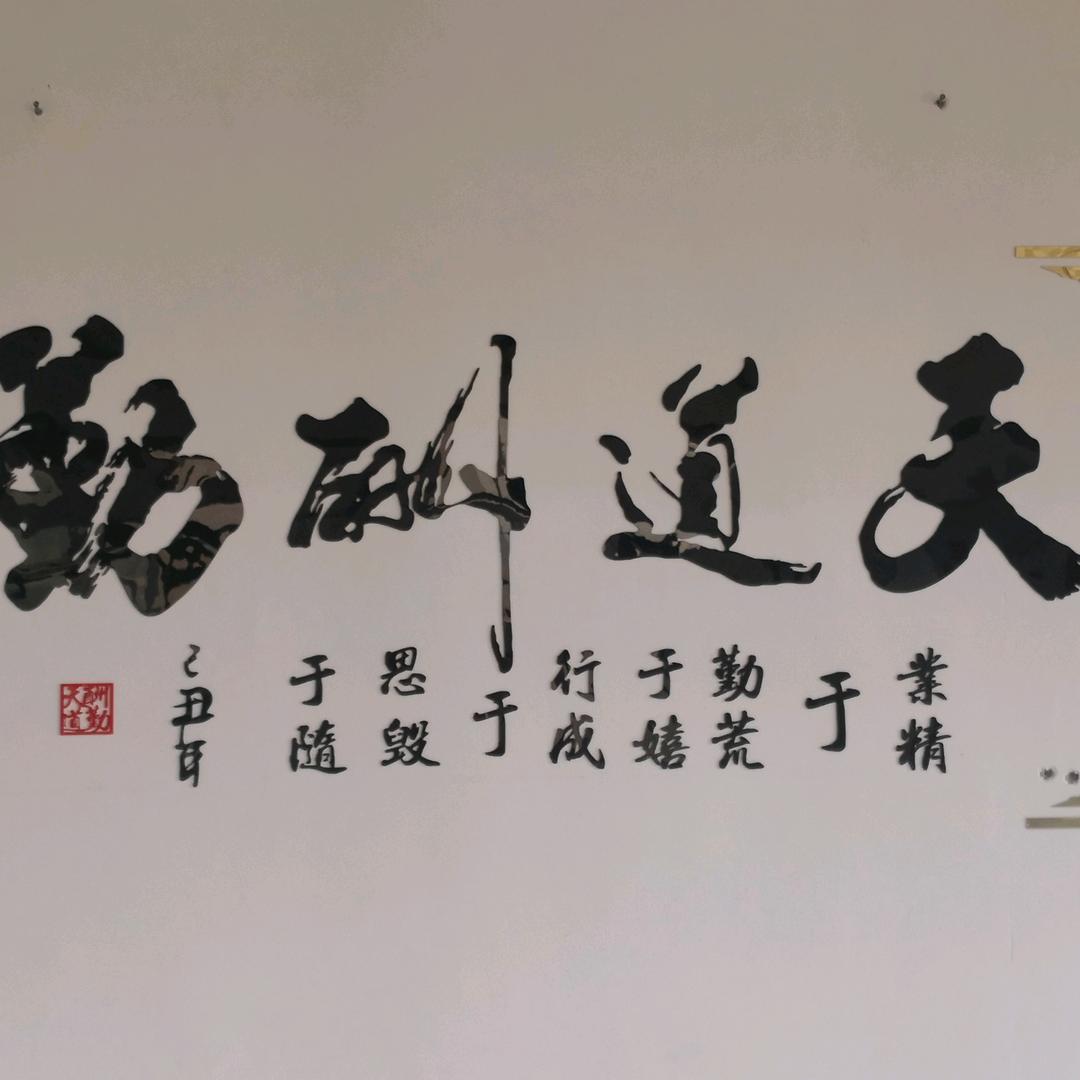 天道酬勤
業精
于
勤荒
于嬉
行成
于
思毁
于隨
己丑年
天道酬勤